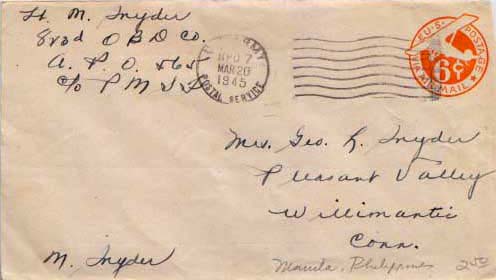 Lt. M. Snyder
83rd O B D Co.
A. P. O. 565
c/o P M S F
U.S. ARMY
APO 7
MAR 20
1945
POSTAL SERVICE
U.S. POSTAGE
6¢
VIA AIR MAIL
Mrs. Geo. L. Snyder
Pleasant Valley
Willimantic
Conn.
M. Snyder
Manila, Philippines
2.50